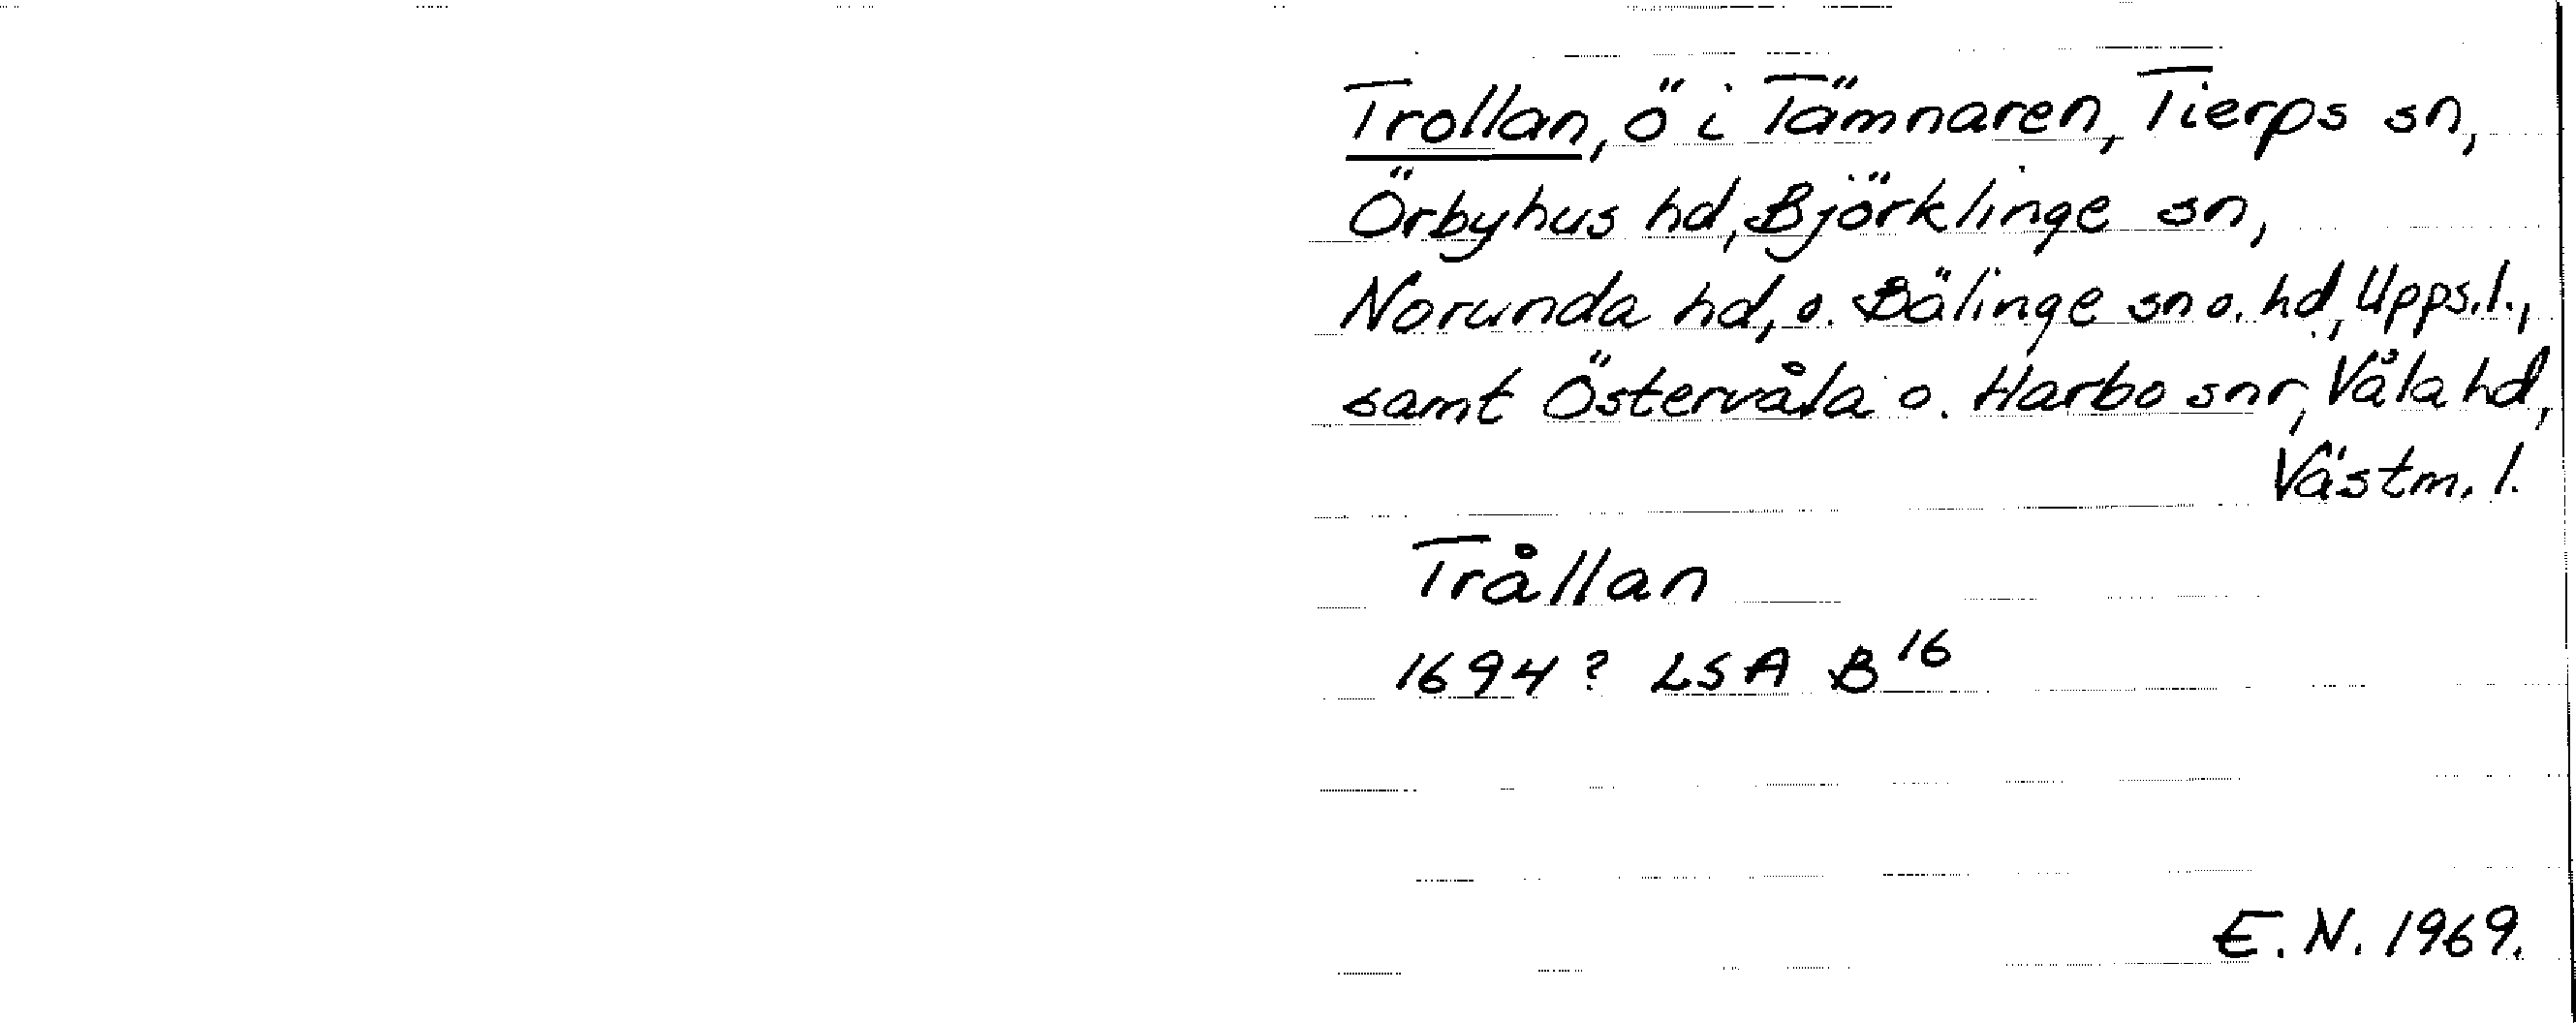 Trollan, ö i Tämnaren, Tierps sn,
Örbyhus hd, Björklinge sn,
Norunda hd, o. Bälinge sn o. hd, Upps. l.,
samt Östervåla o. Harbo snr, Våla hd,
Västm. l.
Trållan
1694? LSA B16
E. N. 1969.